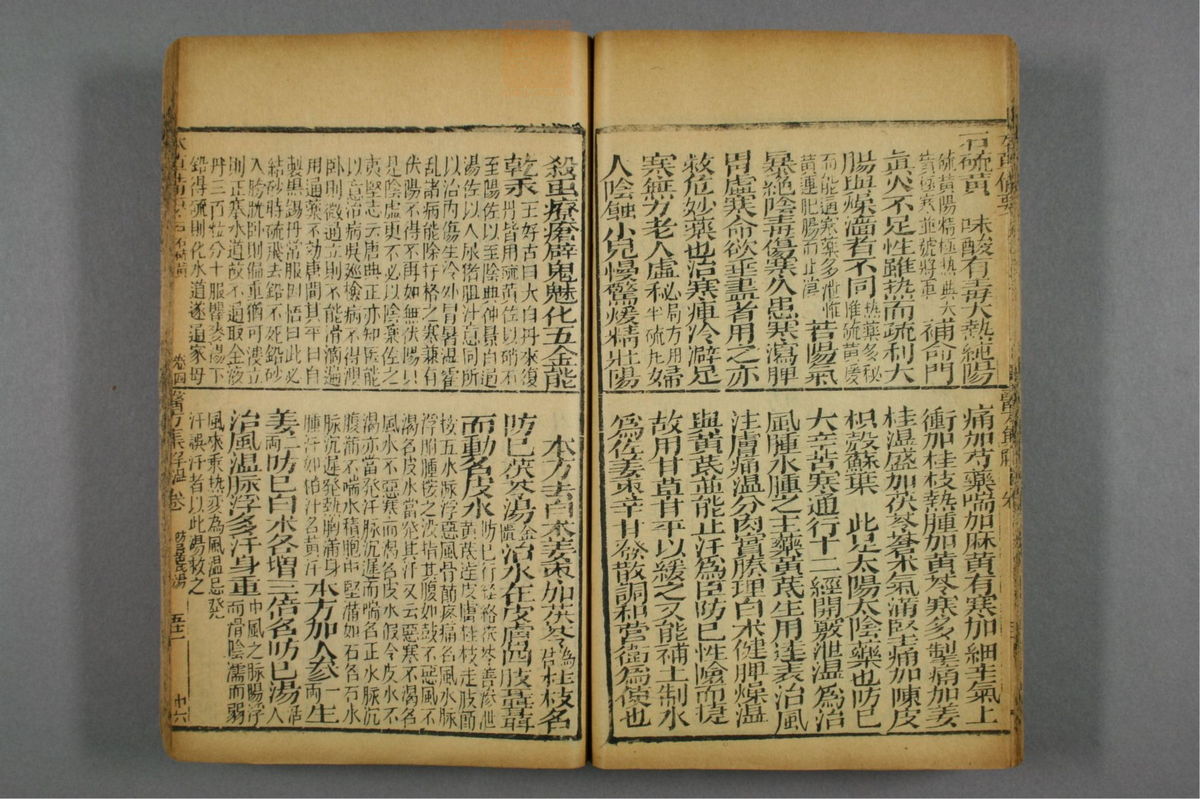 石硫黃　味酸有毒大熱純陽
硫黃陽精極熱與大黃極寒並號將軍　補命門
眞火不足性雖熱而疏利大
腸與燥澀者不同　熱藥多秘惟硫黃暖而能通寒藥多泄惟黃連肥腸而止瀉　若陽氣
暴絶陰毒傷寒久患寒瀉脾
胃虛寒命欲垂盡者用之亦
救危妙藥也治寒痺冷癖足
寒無力老人虛秘　局方用半硫丸　婦
人陰蝕小兒慢驚煖精壯陽
痛加芍藥喘加麻黃有寒加細辛氣上
衝加桂枝熱腫加黃芩寒多掣痛加姜
桂濕盛加茯苓蒼朮氣滿堅痛加陳皮
枳殼蘇葉　此足太陽太陰藥也防己
大辛苦寒通行十二經開竅泄濕為治
風腫水腫之主藥黃芪生用達表治風
注膚痛溫分肉實腠理白朮健脾燥濕
與黃芪並能止汗為臣防己性險而捷
故用甘草甘平以緩之又能補土制水
為佐姜棗辛甘發散調和營衛為使也
殺虫療瘡辟鬼魅化五金能
乾汞　王好古曰太白丹來復丹皆用硫黃佐以硝石
至陽佐以至陰與仲景白通
湯佐以人尿猪胆汁意同所
以治內傷生冷外冒暑濕霍
亂諸病能除扞格之寒兼有
伏陽不得不再如無伏陽只
是陰虛更不必以陰藥佐之
夷堅志云唐與正亦知医能
以意治病吳巡檢病不得溲
卧則微通立則不能涓滴遍
用通藥不効唐問其平日自
製黑錫丹常服因悟曰此必
結砂時硫飛去鉛不死鉛砂
入膀胱卧則偏重猶可溲立
則正塞水道故不通取金液
丹三百粒分十服瞿麥湯下
鉛得硫則化水道遂通家母
本方去白朮姜棗加茯苓為君桂枝名
防己茯苓湯金匱治水在皮膚四肢聶聶
而動名皮水　防己行經絡茯苓善滲泄黃芪達皮膚桂枝走肢節
按五水脉浮惡風骨節疼痛名風水脉
浮胕腫按之沒指其腹如鼓不惡風不
渴名皮水當發其汗又云惡寒不渴名
風水不惡寒而渴名皮水假令皮水不
渴亦當發汗脉沉遲而喘名正水脉沉
腹滿不喘水積胞中堅滿如石名石水
脉沉遲發熱胸滿身
腫汗如柏汁名黃汗　本方加人參一兩生
姜一兩防己白朮各增三倍名防己湯活人
治風溫脉浮多汗身重　中風之脉陽浮而滑陰濡而弱
風來乘熱变為風溫忌發
汗誤汗者以此湯救之